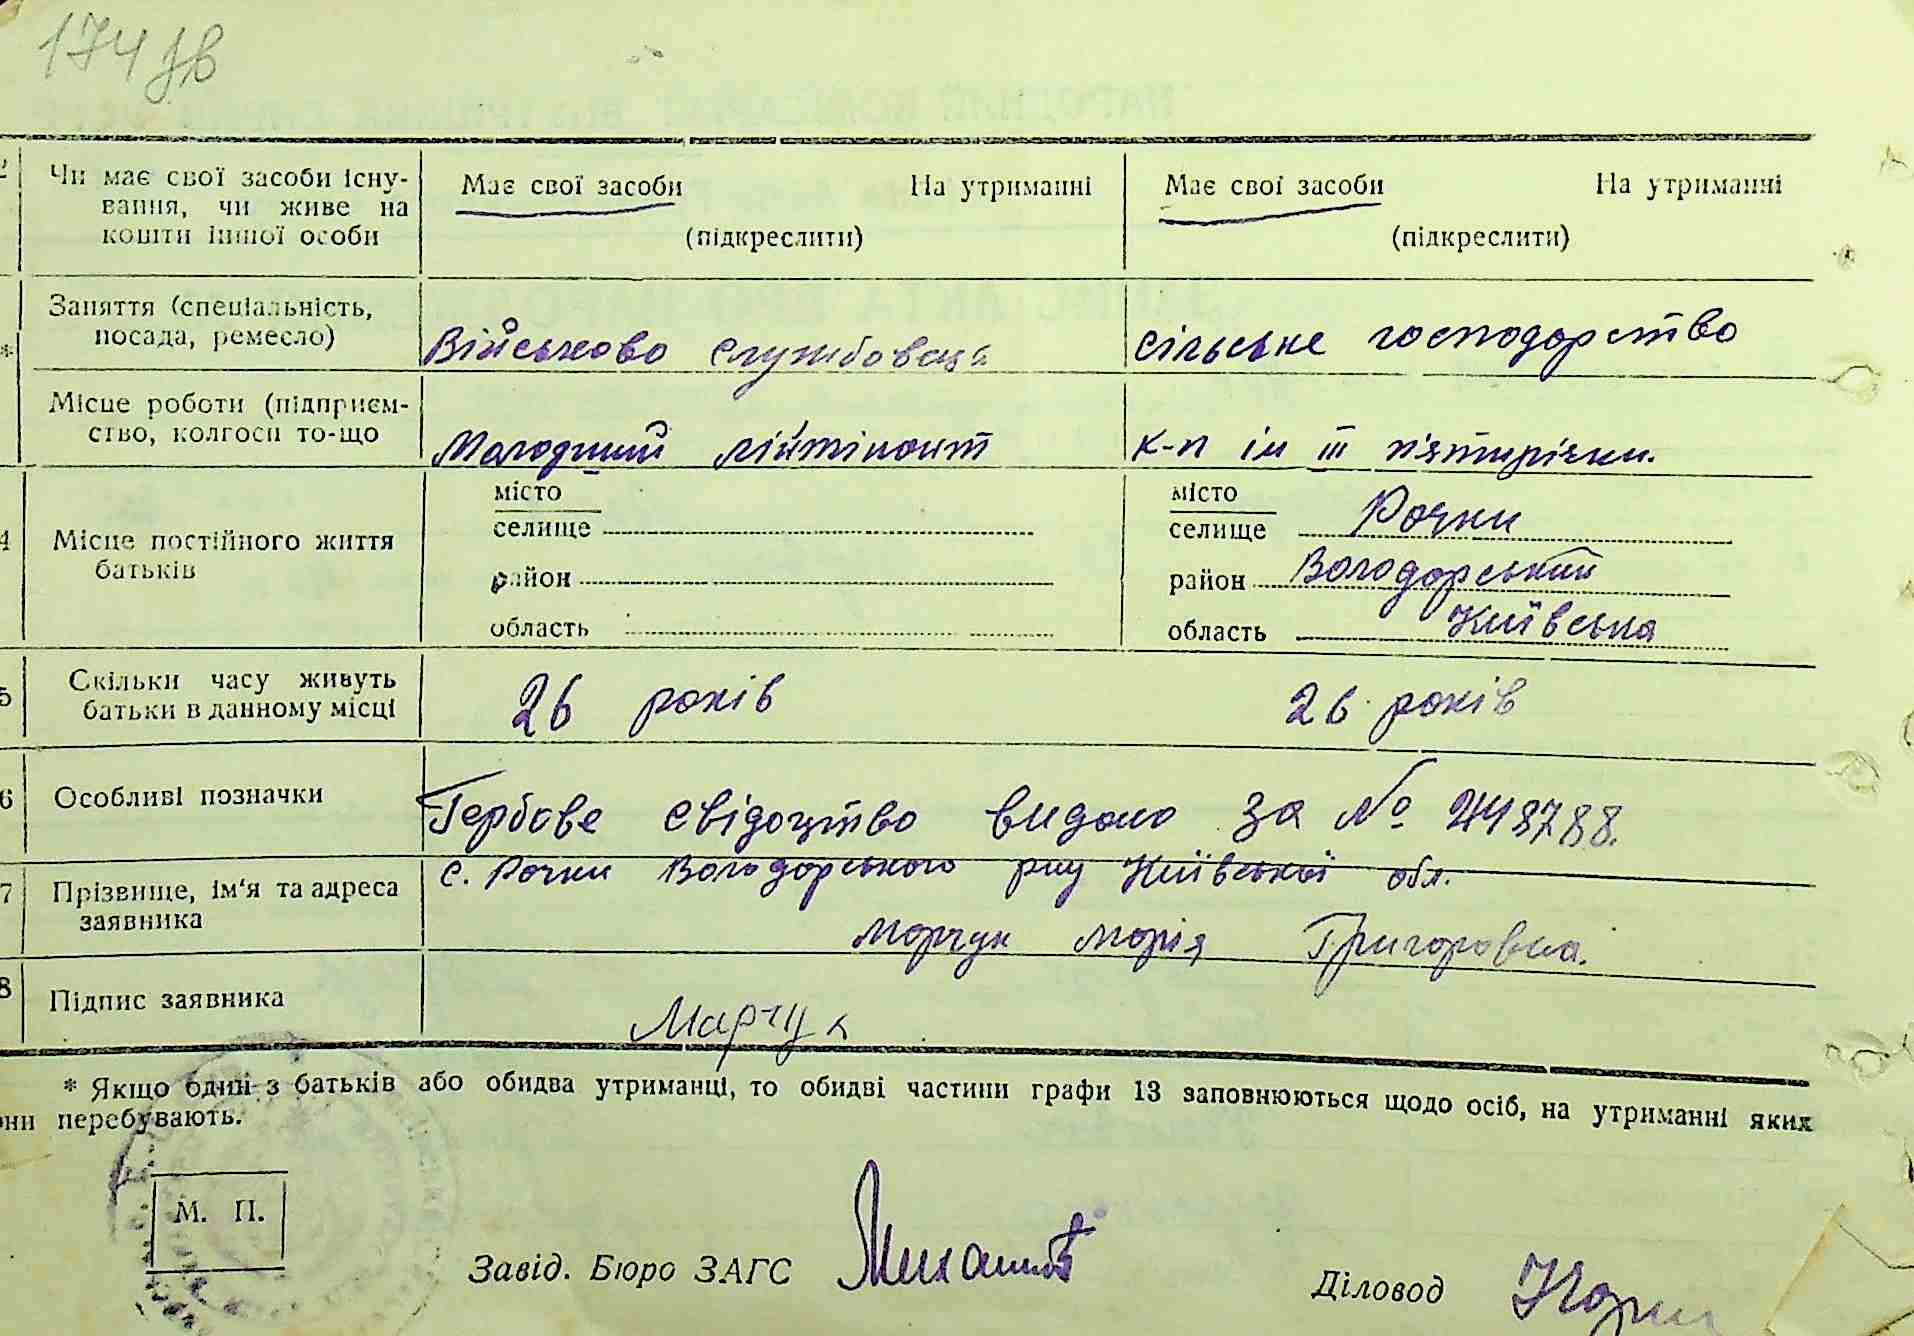 174 зв
2 Чи має свої засоби існу- Має свої засоби На утриманні Має свої засоби На утриманні
вання, чи живе на
кошти іншої особи (підкреслити) (підкреслити)
Заняття (спеціальність,
посада, ремесло) Військово службовець сільське господарство
*
Місце роботи (підприєм-
ство, колгосп то-що Молодший лійтінант к-п ім III п'ятирічки.
місто місто
селище селище Рочки
4 Місце постійного життя
батьків район район Володарський
область область Київська
5 Скільки часу живуть
батьки в данному місці 26 років 26 років
6 Особливі позначки Гербове свідоцтво видано за №
с. Рочки Володарського р-ну Київської обл.
7 Прізвище, ім'я та адреса
заявника Марчук Марія Григоровна.
8 Підпис заявника Марчук
* Якщо один з батьків або обидва утриманці, то обидві частини графи 13 заповнюються щодо осіб, на утриманні яких
они перебувають.
М. П.
Завід. Бюро ЗАГС
Діловод